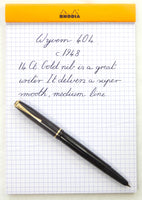 RHODIA
Wyvern 404
c 1948
14 Ct Gold nib is a great
writer. It delivers a super
smooth, medium line